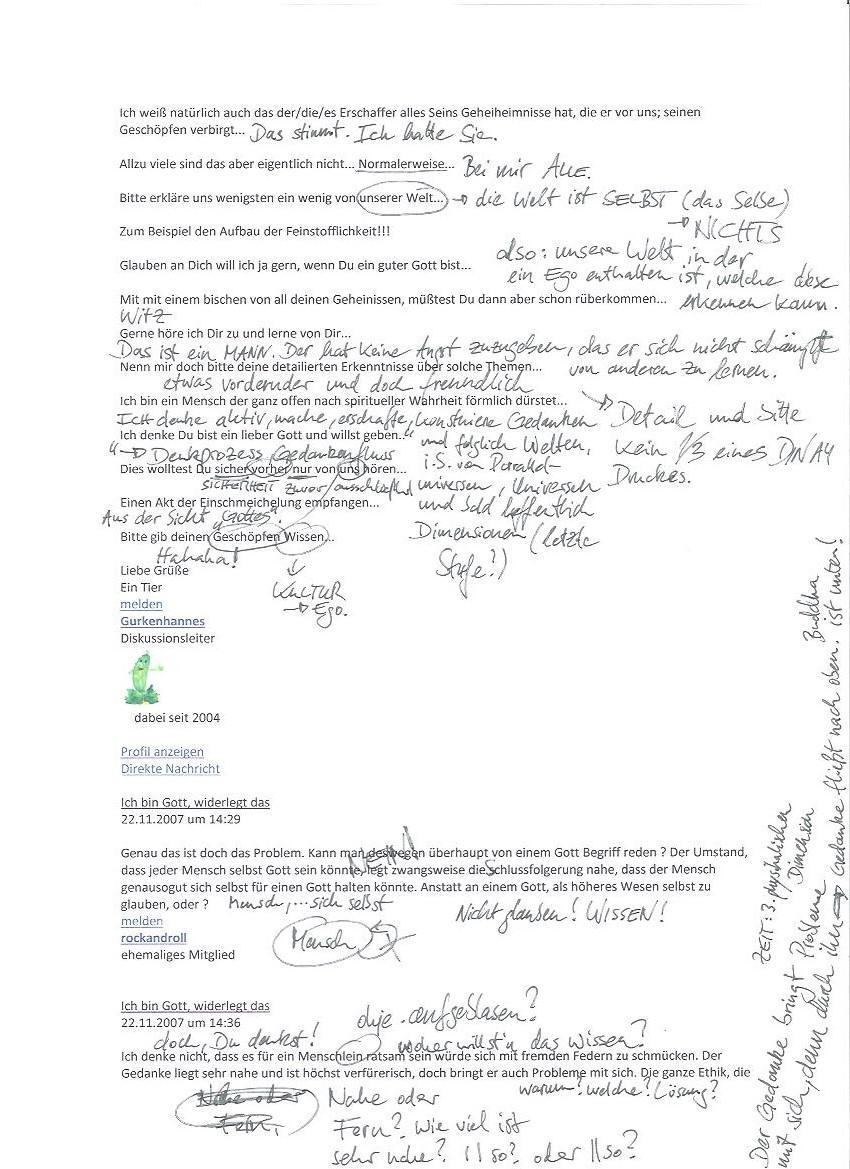 Ich weiß natürlich auch das der/die/es Erschaffer alles Seins Geheiheimnisse hat, die er vor uns; seinen
Geschöpfen verbirgt... Das stimmt. Ich hatte Sie.
Allzu viele sind das aber eigentlich nicht... Normalerweise... Bei mir ALLE.
Bitte erkläre uns wenigsten ein wenig von unserer Welt... → die Welt ist SELBST (das Selbe)
→ NICHTS
Zum Beispiel den Aufbau der Feinstofflichkeit!!!
also: unsere Welt in der
Glauben an Dich will ich ja gern, wenn Du ein guter Gott bist...
ein Ego enthalten ist, welche diese
Mit mit einem bischen von all deinen Geheinissen, müßtest Du dann aber schon rüberkommen... erkennen kann.
Witz
Gerne höre ich Dir zu und lerne von Dir...
Das ist ein MANN. Der hat keine Angst zuzugeben, das er sich nicht schämpfte
Nenn mir doch bitte deine detailierten Erkenntnisse über solche Themen... von anderen zu lernen.
etwas vordernder und doch freundlich
Ich bin ein Mensch der ganz offen nach spiritueller Wahrheit förmlich dürstet...
Ich denke aktiv, mache, erschaffe, konstruiere Gedanken → Detail und Sitte
Ich denke Du bist ein lieber Gott und willst geben... und folglich Welten, kein 1/3 eines DNA4
"→ Denkprozess Gedankenfluss i.S. von Parallel- Druckes.
Dies wolltest Du sicher vorher nur von uns hören...
SICHERHEIT zuvor/ausschließlich universen, Universen
Einen Akt der Einschmeichelung empfangen... und
Aus der Sicht "Gottes". Dimensionen (letzte
Bitte gib deinen Geschöpfen Wissen...
Hahaha! Stufe?)
Liebe Grüße
Ein Tier KULTUR
melden → Ego.
Gurkenhannes
Diskussionsleiter
dabei seit 2004
Profil anzeigen
Direkte Nachricht
Ich bin Gott, widerlegt das
22.11.2007 um 14:29
NEIN!
Genau das ist doch das Problem. Kann man deswegen überhaupt von einem Gott Begriff reden ? Der Umstand,
dass jeder Mensch selbst Gott sein könnte, legt zwangsweise die Schlussfolgerung nahe, dass der Mensch
genausogut sich selbst für einen Gott halten könnte. Anstatt an einem Gott, als höheres Wesen selbst zu
glauben, oder ? Mensch,...sich selbst
Nicht glauben! WISSEN!
melden
rockandroll
Mensch
ehemaliges Mitglied
Ich bin Gott, widerlegt das
22.11.2007 um 14:36
aufgeblasen?
doch, Du denkst! woher willst'n das wissen?
Ich denke nicht, dass es für ein Menschlein ratsam sein würde sich mit fremden Federn zu schmücken. Der
Gedanke liegt sehr nahe und ist höchst verfürerisch, doch bringt er auch Probleme mit sich. Die ganze Ethik, die
warum? welche? Lösung?
Nahe oder
Fern.
Nahe oder
Fern? Wie viel ist
sehr nahe? || so? oder || so?
ZEIT: 3. physikalischer Dimension
Der Gedanke bringt Probleme
mit sich, denn durch ihn → Gedanke fließt nach oben. Buddha ist unten!